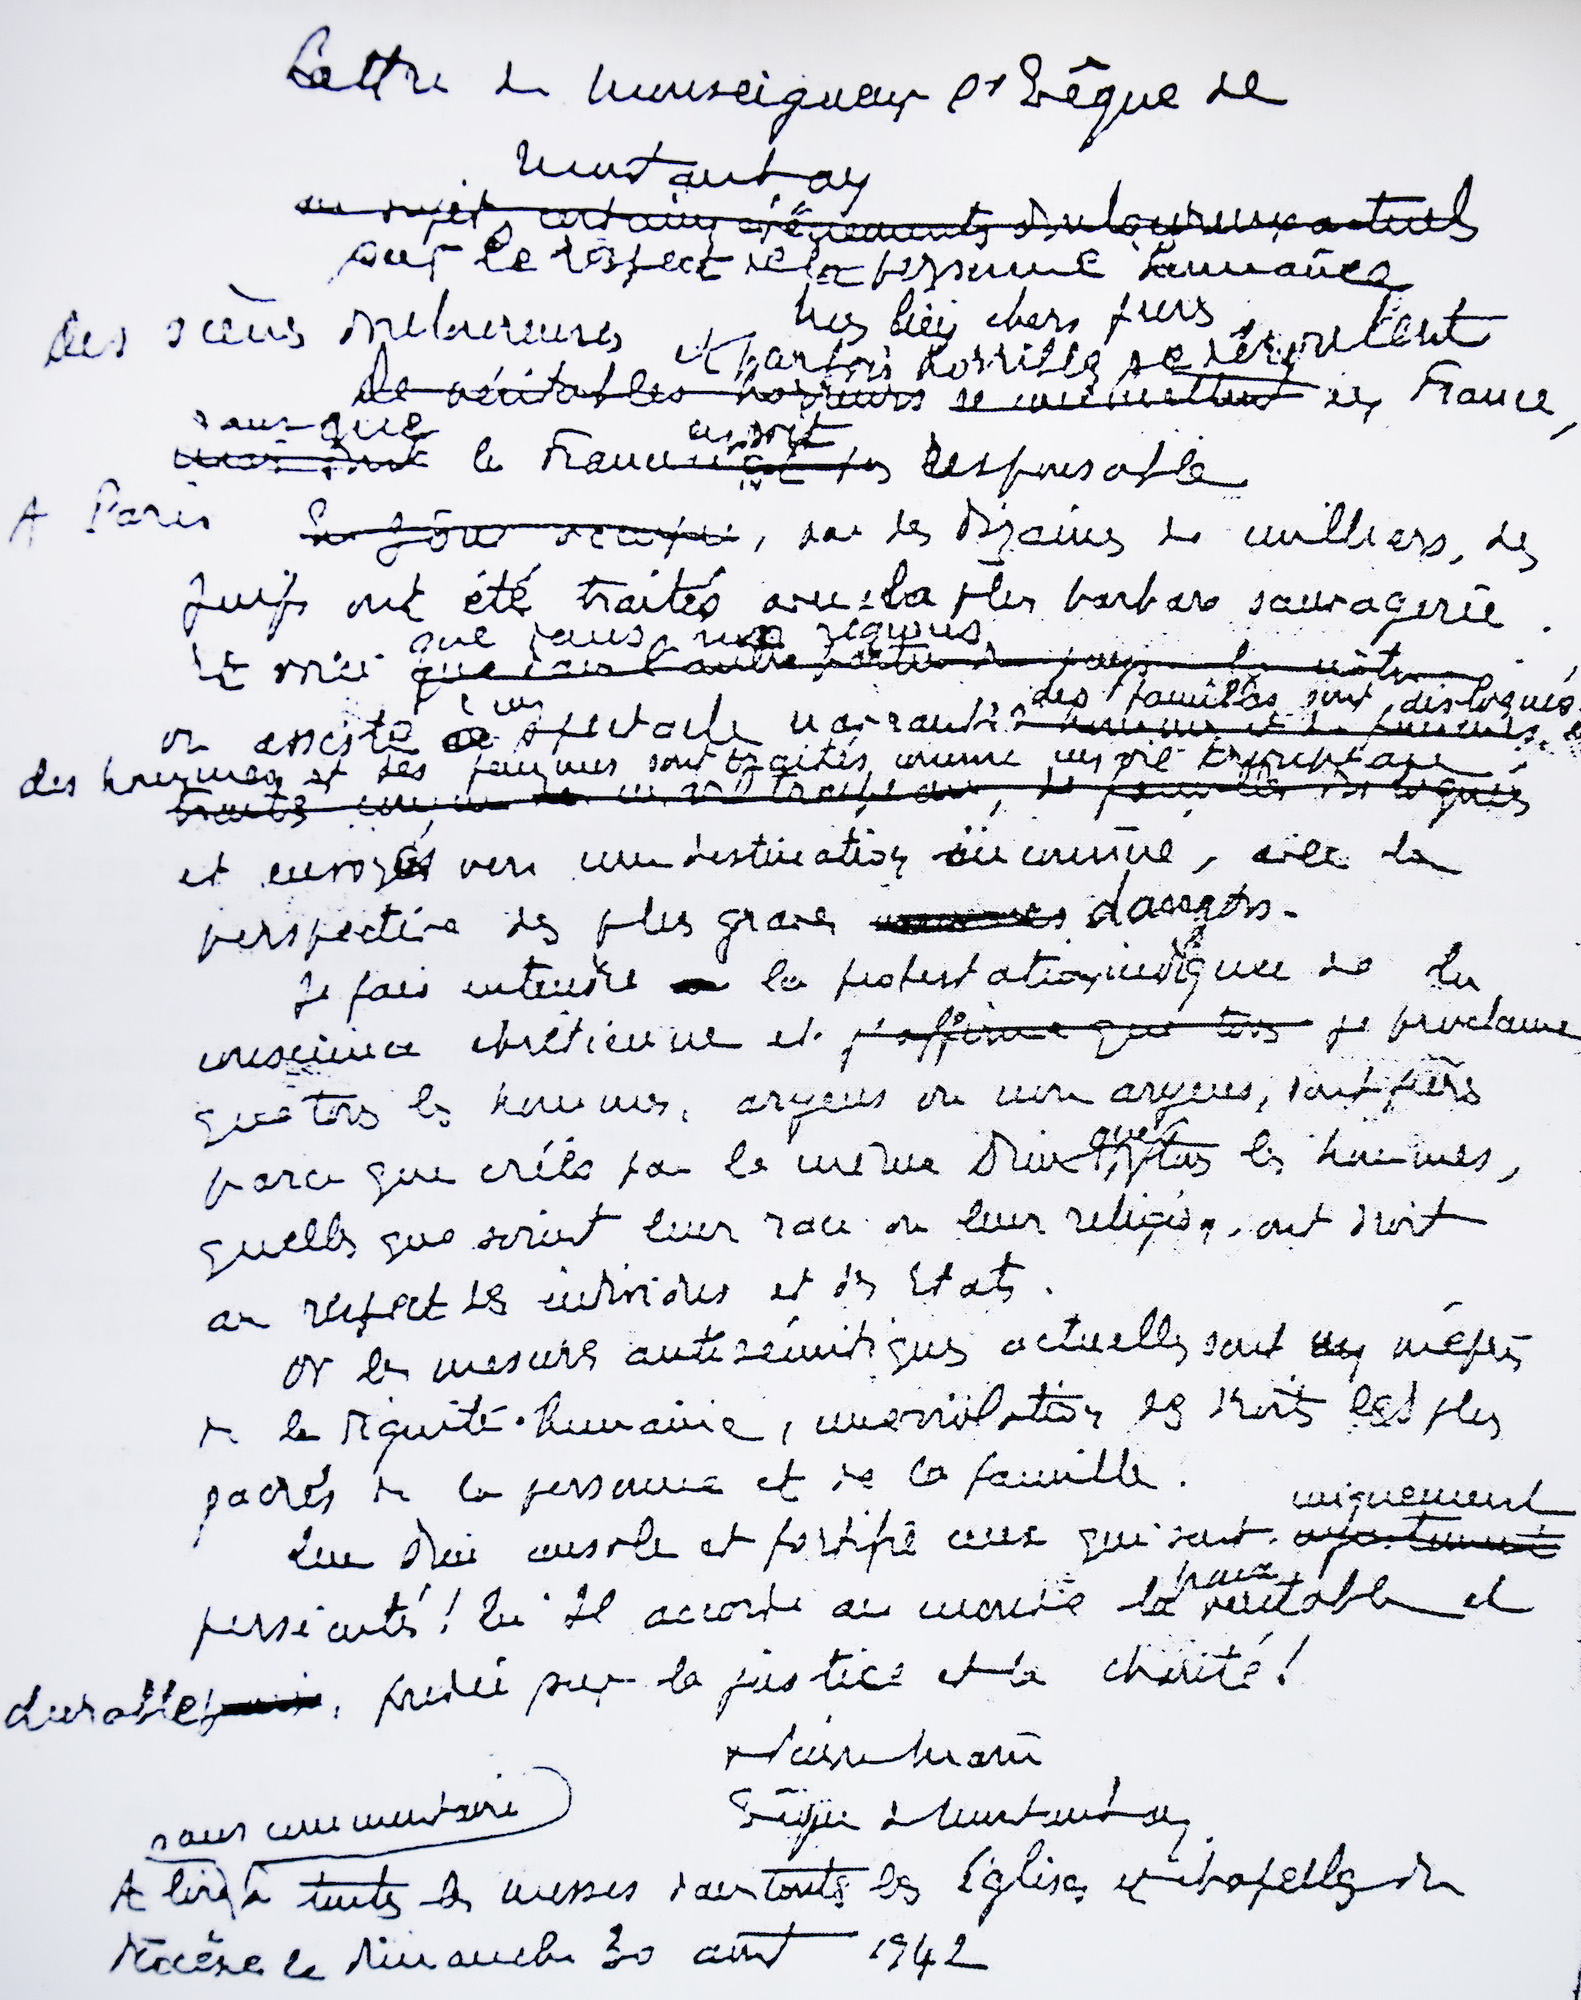 Lettre de Monseigneur l'Evêque de
Montauban
au sujet certains évènements douloureux actuels
sur le respect de la personne humaine
Mes biens chers frères
Des scènes douloureuses et parfois horribles se déroulent
De véritables horreurs se commettent en France,
sans que en soit
mais dont la France n'est pas responsable
A Paris la zône occupée, par des dizaines de milliers, des
Juifs ont été traités avec la plus barbare sauvagerie.
que dans nos régions
Et voici que dans l'autre partie du pays la nôtre
un des familles sont disloquées
on assiste à spectacle navrant : hommes et des femmes
des hommes et des femmes sont traités comme un vil troupeau ;
traités comme un vil troupeau, des familles disloquées
et envoyés vers une destination inconnue, avec la
perspective des plus graves dangers.
Je fais entendre la protestation indignée de la
conscience chrétienne et j'affirme que tous je proclame
que tous les hommes, aryens ou non aryens, sont frères
parce que créés par le même Dieu ; que tous les hommes,
quelles que soient leur race ou leur religion, ont droit
au respect des individus et des Etats.
Or les mesures antisémitiques actuelles sont un mépris
de la dignité humaine, une violation des droits les plus
sacrés de la personne et de la famille.
iniquement
Que Dieu console et fortifie ceux qui sont
paix
persécutés ! Qu'Il accorde au monde la véritable et
durable paix, fondée sur la justice et la charité !
+ Pierre Marie
Evêque de Montauban
sans commentaire
A lire à toutes les messes dans toutes les Eglises et chapelles du
Diocèse le Dimanche 30 août 1942